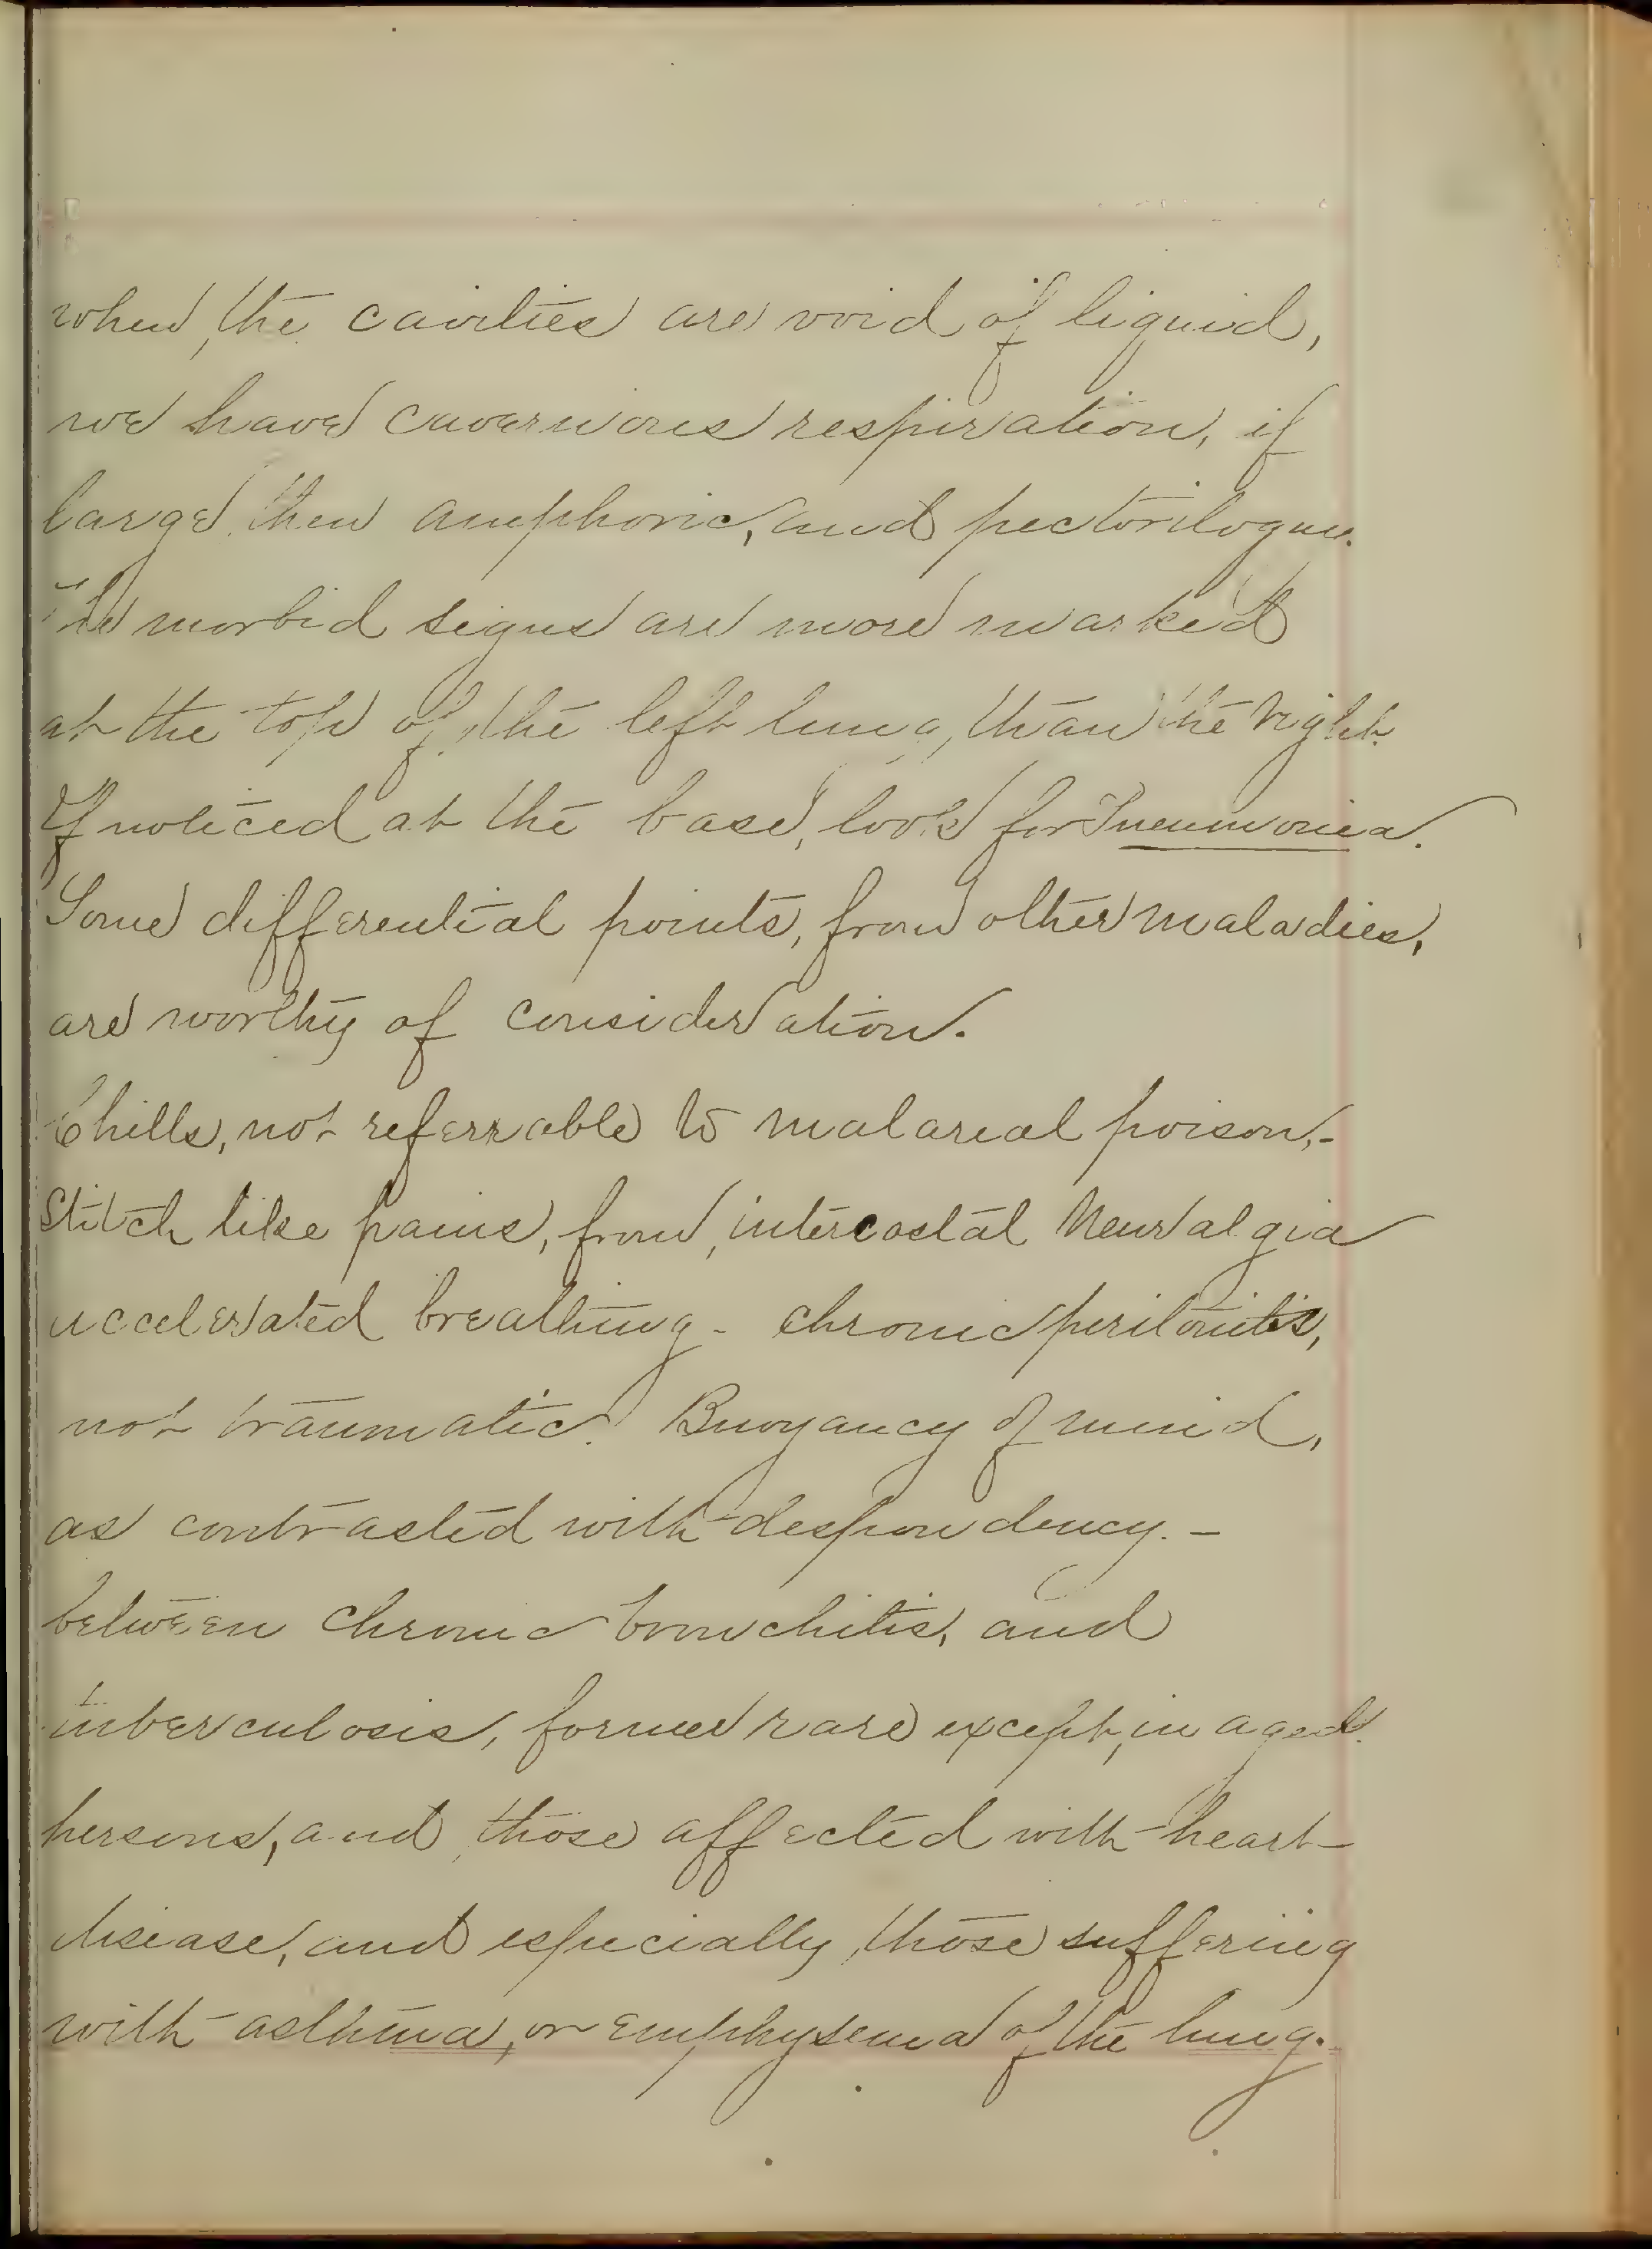 when, the cavities are void of liquid,
we have cavernous respiration, if
large, then amphoric, and pectoriloquy.
The morbid signs are more marked
at the top of, the left lung, than the right.
If noticed at the base, look for Pneumonia.
Some differential points, from other maladies,
are worthy of consideration.
Chills, not referrable to malareal poison,-
Stitch like pains, from, intercostal Neuralgia
accelerated breathing - chronic peritonitis,
not traumatic. Buoyancy of mind,
as contrasted with despondency. -
between chronic bronchitis, and
tuberculosis, former rare except, in aged
persons, and those affected with heart-
disease, and especially, those suffering
with asthma, or emphysema of the lung.